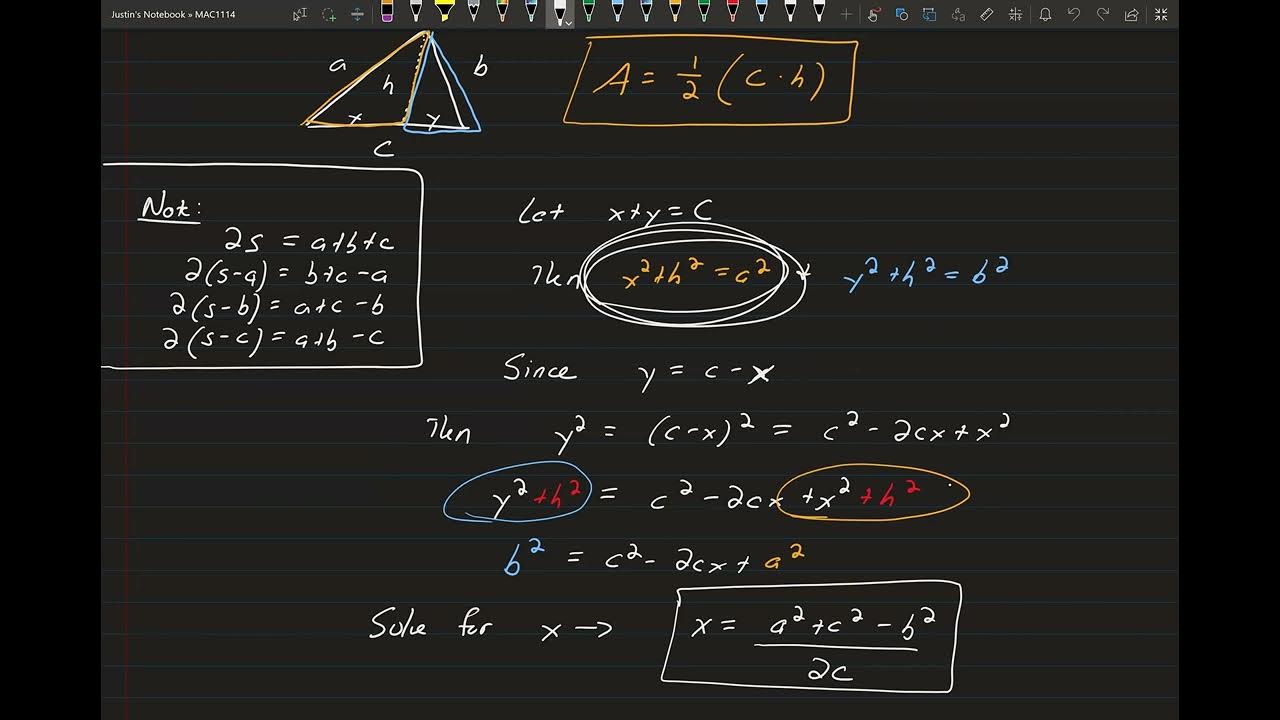 Justin's Notebook » MAC1114
a
h
b
x
y
c
A = 1/2 (c · h)
Note:
2s = a+b+c
2(s-a) = b+c-a
2(s-b) = a+c-b
2(s-c) = a+b-c
Let x+y = C
Then x² + h² = a² y² + h² = b²
Since y = c - x
Then y² = (c-x)² = c² - 2cx + x²
y² + h² = c² - 2cx + x² + h²
b² = c² - 2cx + a²
Solve for x → x = (a² + c² - b²)/2c